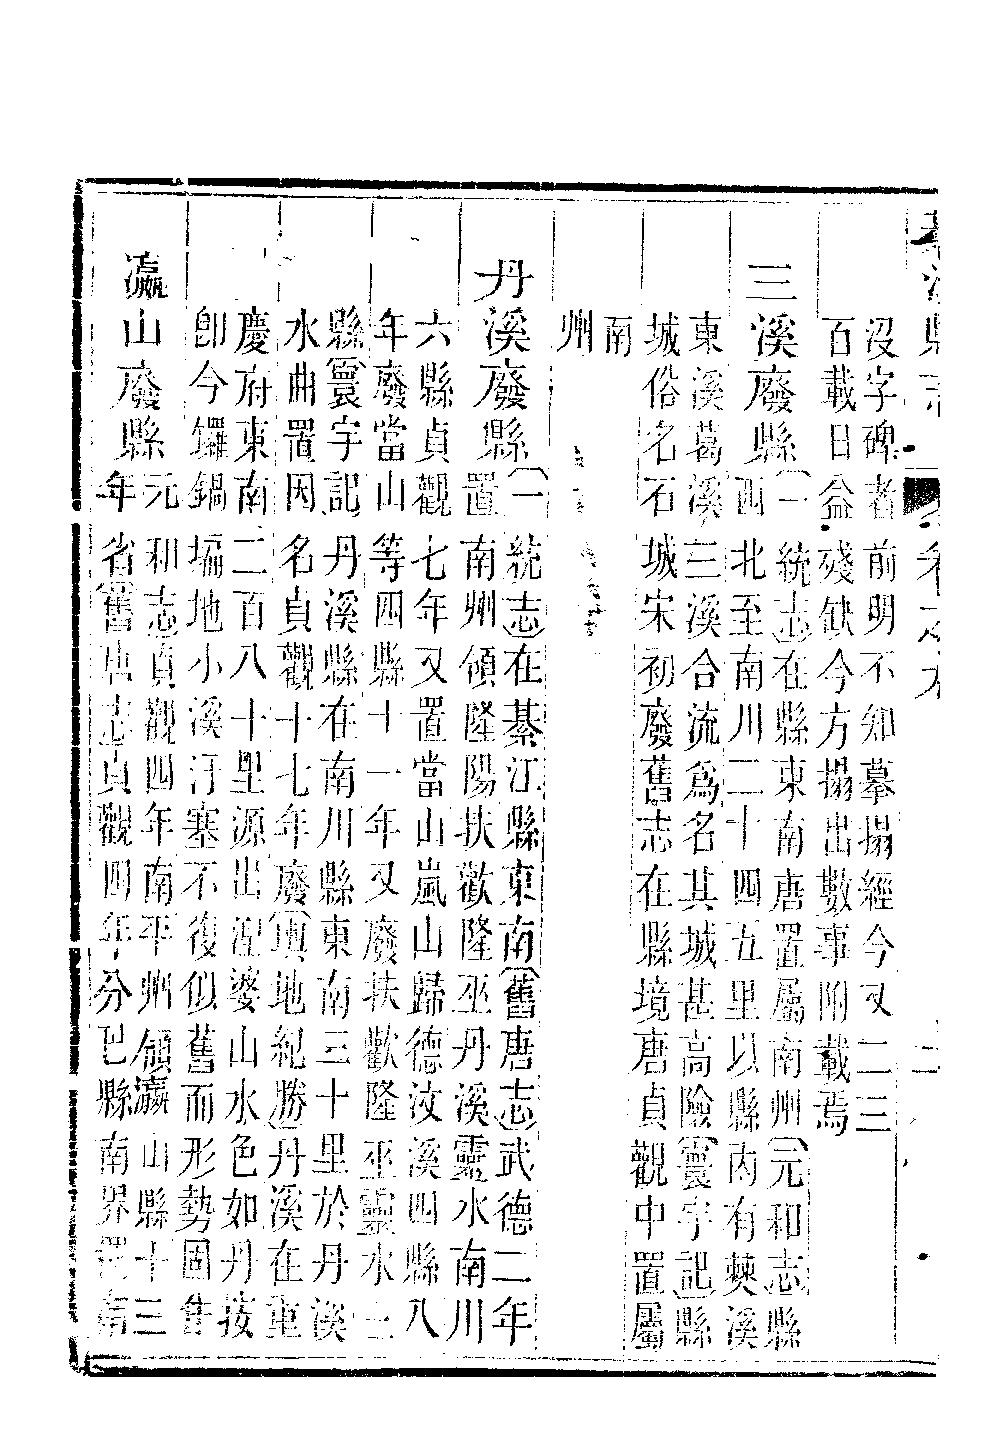 沒字碑者前明不知摹搨經今又二三
百載日益殘缺今方搨出數事附載焉
三溪廢縣
(一統志)在縣東南唐置屬南州(元和志)縣
西北至南川二十四五里以縣內有僰溪
東溪葛溪三溪合流爲名其城甚高險(寰宇記)縣
城俗名石城宋初廢舊志在縣境唐貞觀中置屬
南
州
丹溪廢縣
(一統志)在綦江縣東南(舊唐志)武德二年
置南州領隆陽扶歡隆巫丹溪靈水南川
六縣貞觀七年又置當山嵐山歸德汶溪四縣八
年廢當山等四縣十一年又廢扶歡隆巫靈水三
縣(寰宇記)丹溪縣在南川縣東南三十里於丹溪
水曲置因名貞觀十七年廢(輿地紀勝)丹溪在重
慶府東南二百八十里源出涅婆山水色如丹按
卽今鑼鍋塥地小溪汙塞不復似舊而形勢固
瀛山廢縣
元和志)貞觀四年南平州領瀛山縣十三
年省(舊唐志貞觀四年分巴縣南界置南